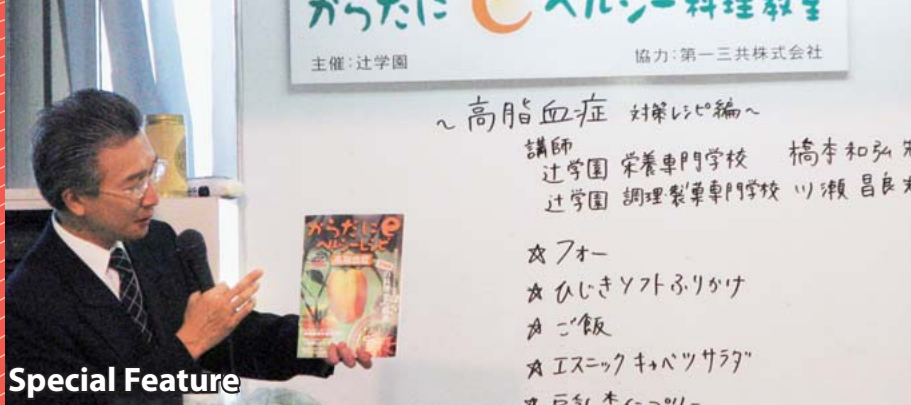 からだに e ヘルシー料理教室
主催:辻学園
協力:第一三共株式会社
~高脂血症 対策レシピ編~
講師
辻学園 栄養専門学校 橋本和弘
辻学園 調理・製菓専門学校 川瀬 昌良
☆フォー
☆ひじきソフトふりかけ
☆ご飯
☆エスニックキャベツサラダ
からだにe
ヘルシーレシピ
Special Feature